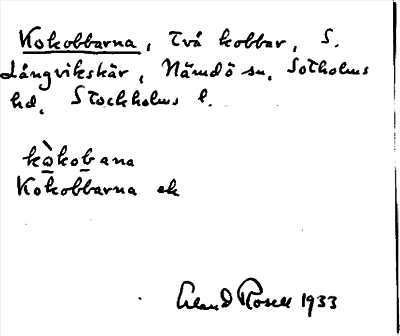 Kokobbarna, Två kobbar, S.
Långvikskär, Nämdö sn, Sotholms
hd, Stockholms l.
kòkobana
Kokobbarna ek
Erland Rosell 1933